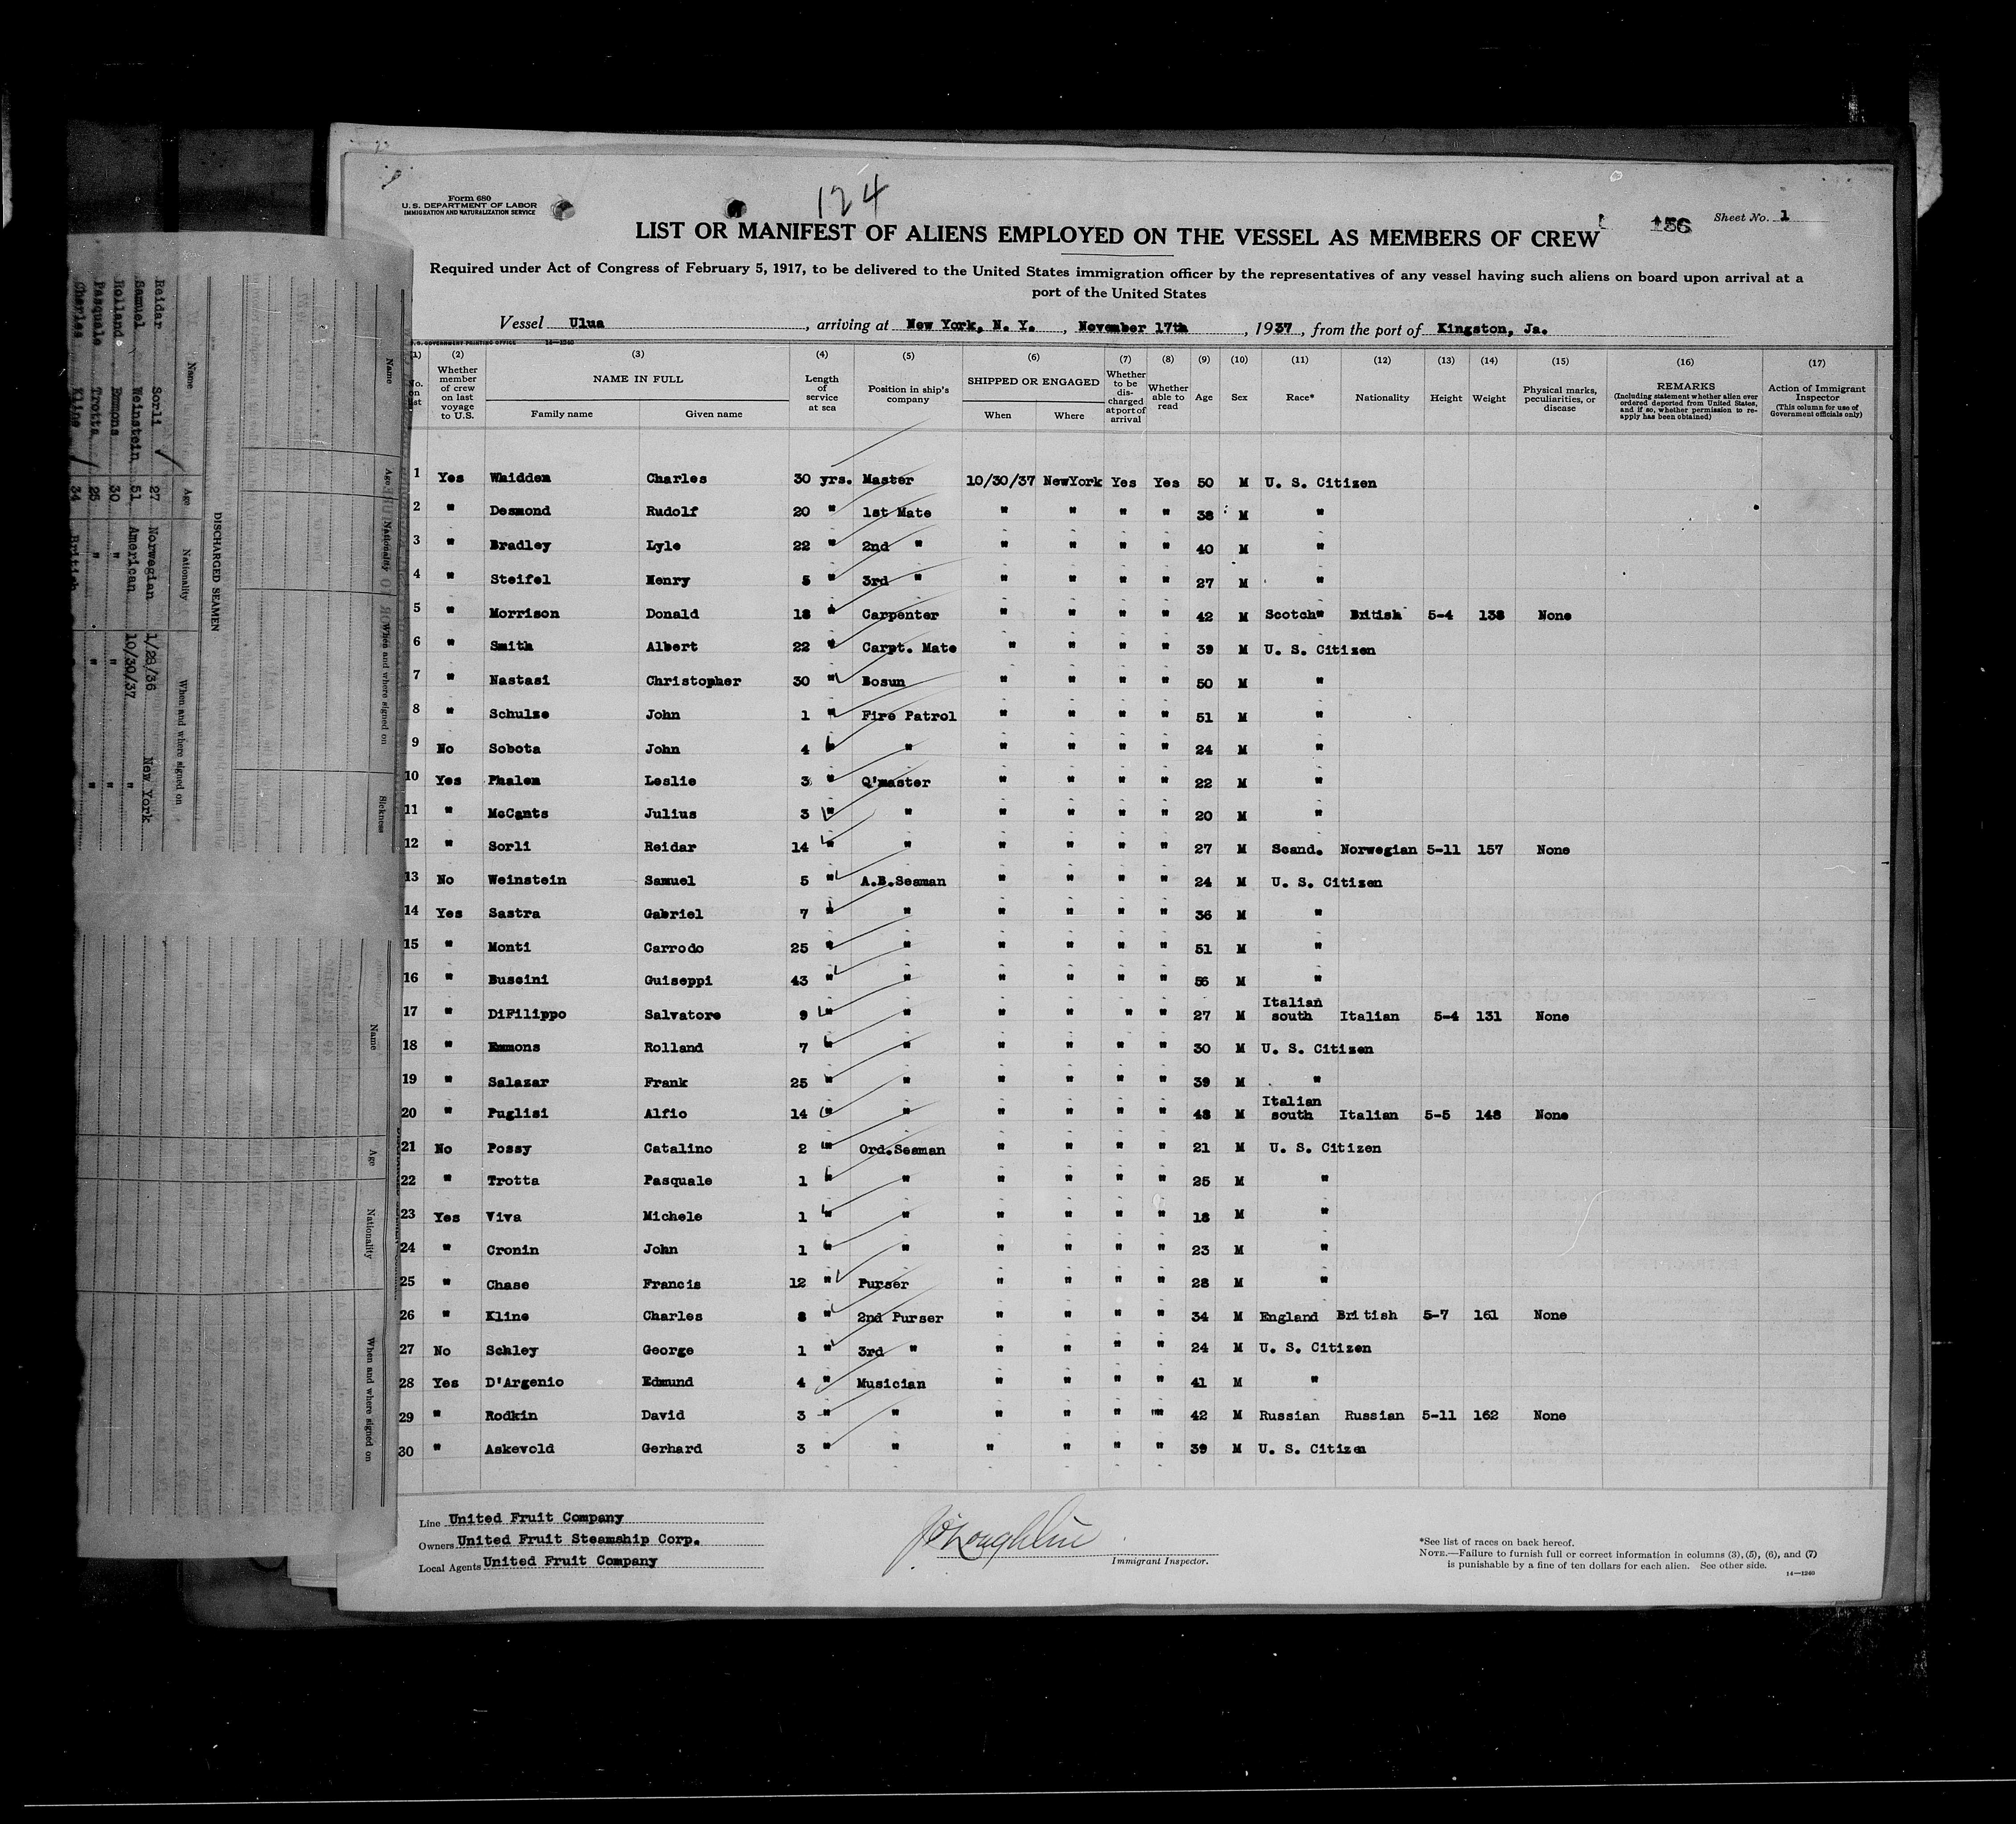 124
Form 680
U. S. DEPARTMENT OF LABOR
IMMIGRATION AND NATURALIZATION SERVICE
Sheet No. 1
156
LIST OR MANIFEST OF ALIENS EMPLOYED ON THE VESSEL AS MEMBERS OF CREW
Required under Act of Congress of February 5, 1917, to be delivered to the United States immigration officer by the representatives of any vessel having such aliens on board upon arrival at a
port of the United States
Vessel Ulua, arriving at New York, N. Y., November 17th, 1937, from the port of Kingston, Ja.
U.S. GOVERNMENT PRINTING OFFICE 14—1240
(1) (2) (3) (4) (5) (6) (7) (8) (9) (10) (11) (12) (13) (14) (15) (16) (17)
No. on list
Whether member of crew on last voyage to U.S.
NAME IN FULL
Family name Given name
Length of service at sea
Position in ship's company
SHIPPED OR ENGAGED
When Where
Whether to be discharged at port of arrival
Whether able to read
Age
Sex
Race*
Nationality
Height
Weight
Physical marks, peculiarities, or disease
REMARKS
(Including statement whether alien ever ordered deported from United States, and if so, whether permission to reapply has been obtained)
Action of Immigrant Inspector
(This column for use of Government officials only)
1 Yes Whidden Charles 30 yrs. Master 10/30/37 NewYork Yes Yes 50 M U. S. Citizen
2 " Desmond Rudolf 20 " 1st Mate " " " " 38 M "
3 " Bradley Lyle 22 " 2nd " " " " " 40 M "
4 " Steifel Henry 5 " 3rd " " " " " 27 M "
5 " Morrison Donald 18 " Carpenter " " " " 42 M Scotch" British 5-4 138 None
6 " Smith Albert 22 " Carpt. Mate " " " " 39 M U. S. Citizen
7 " Nastasi Christopher 30 " Bosun " " " " 50 M "
8 " Schulze John 1 " Fire Patrol " " " " 51 M "
9 No Sobota John 4 " " " " " " 24 M "
10 Yes Phalen Leslie 3 " Q'master " " " " 22 M "
11 " McCants Julius 3 " " " " " " 20 M "
12 " Sorli Reidar 14 " " " " " " 27 M Scand. Norwegian 5-11 157 None
13 No Weinstein Samuel 5 " A.B.Seaman " " " " 24 M U. S. Citizen
14 Yes Sastra Gabriel 7 " " " " " " 36 M "
15 " Monti Carrodo 25 " " " " " " 51 M "
16 " Buscini Guiseppi 43 " " " " " " 56 M "
17 " DiFilippo Salvatore 9 " " " " " " 27 M Italian south Italian 5-4 131 None
18 " Emmons Rolland 7 " " " " " " 30 M U. S. Citizen
19 " Salazar Frank 25 " " " " " " 39 M "
20 " Puglisi Alfio 14 " " " " " " 48 M Italian south Italian 5-5 148 None
21 No Possy Catalino 2 " Ord.Seaman " " " " 21 M U. S. Citizen
22 " Trotta Pasquale 1 " " " " " " 25 M "
23 Yes Viva Michele 1 " " " " " " 18 M "
24 " Cronin John 1 " " " " " " 23 M "
25 " Chase Francis 12 " Purser " " " " 28 M "
26 " Kline Charles 8 " 2nd Purser " " " " 34 M England British 5-7 161 None
27 No Schley George 1 " 3rd " " " " " 24 M U. S. Citizen
28 Yes D'Argenio Edmund 4 " Musician " " " " 41 M "
29 " Rodkin David 3 " " " " " " 42 M Russian Russian 5-11 162 None
30 " Askevold Gerhard 3 " " " " " " 39 M U. S. Citizen
Line United Fruit Company
Owners United Fruit Steamship Corp.
Local Agents United Fruit Company
Immigrant Inspector.
*See list of races on back hereof.
NOTE.—Failure to furnish full or correct information in columns (3), (5), (6), and (7)
is punishable by a fine of ten dollars for each alien. See other side.
14—1240
Name Age Nationality When and where signed on Sickness
DISCHARGED SEAMEN
Name Age Nationality When and where signed on
Reidar Sorli 27 Norwegian 1/28/36 New York
Samuel Weinstein 51 American 10/30/37 "
Rolland Emmons 30 " " "
Pasquale Trotta 25 " " "
Charles Kline 34 British
Name Age Nationality When and where signed on